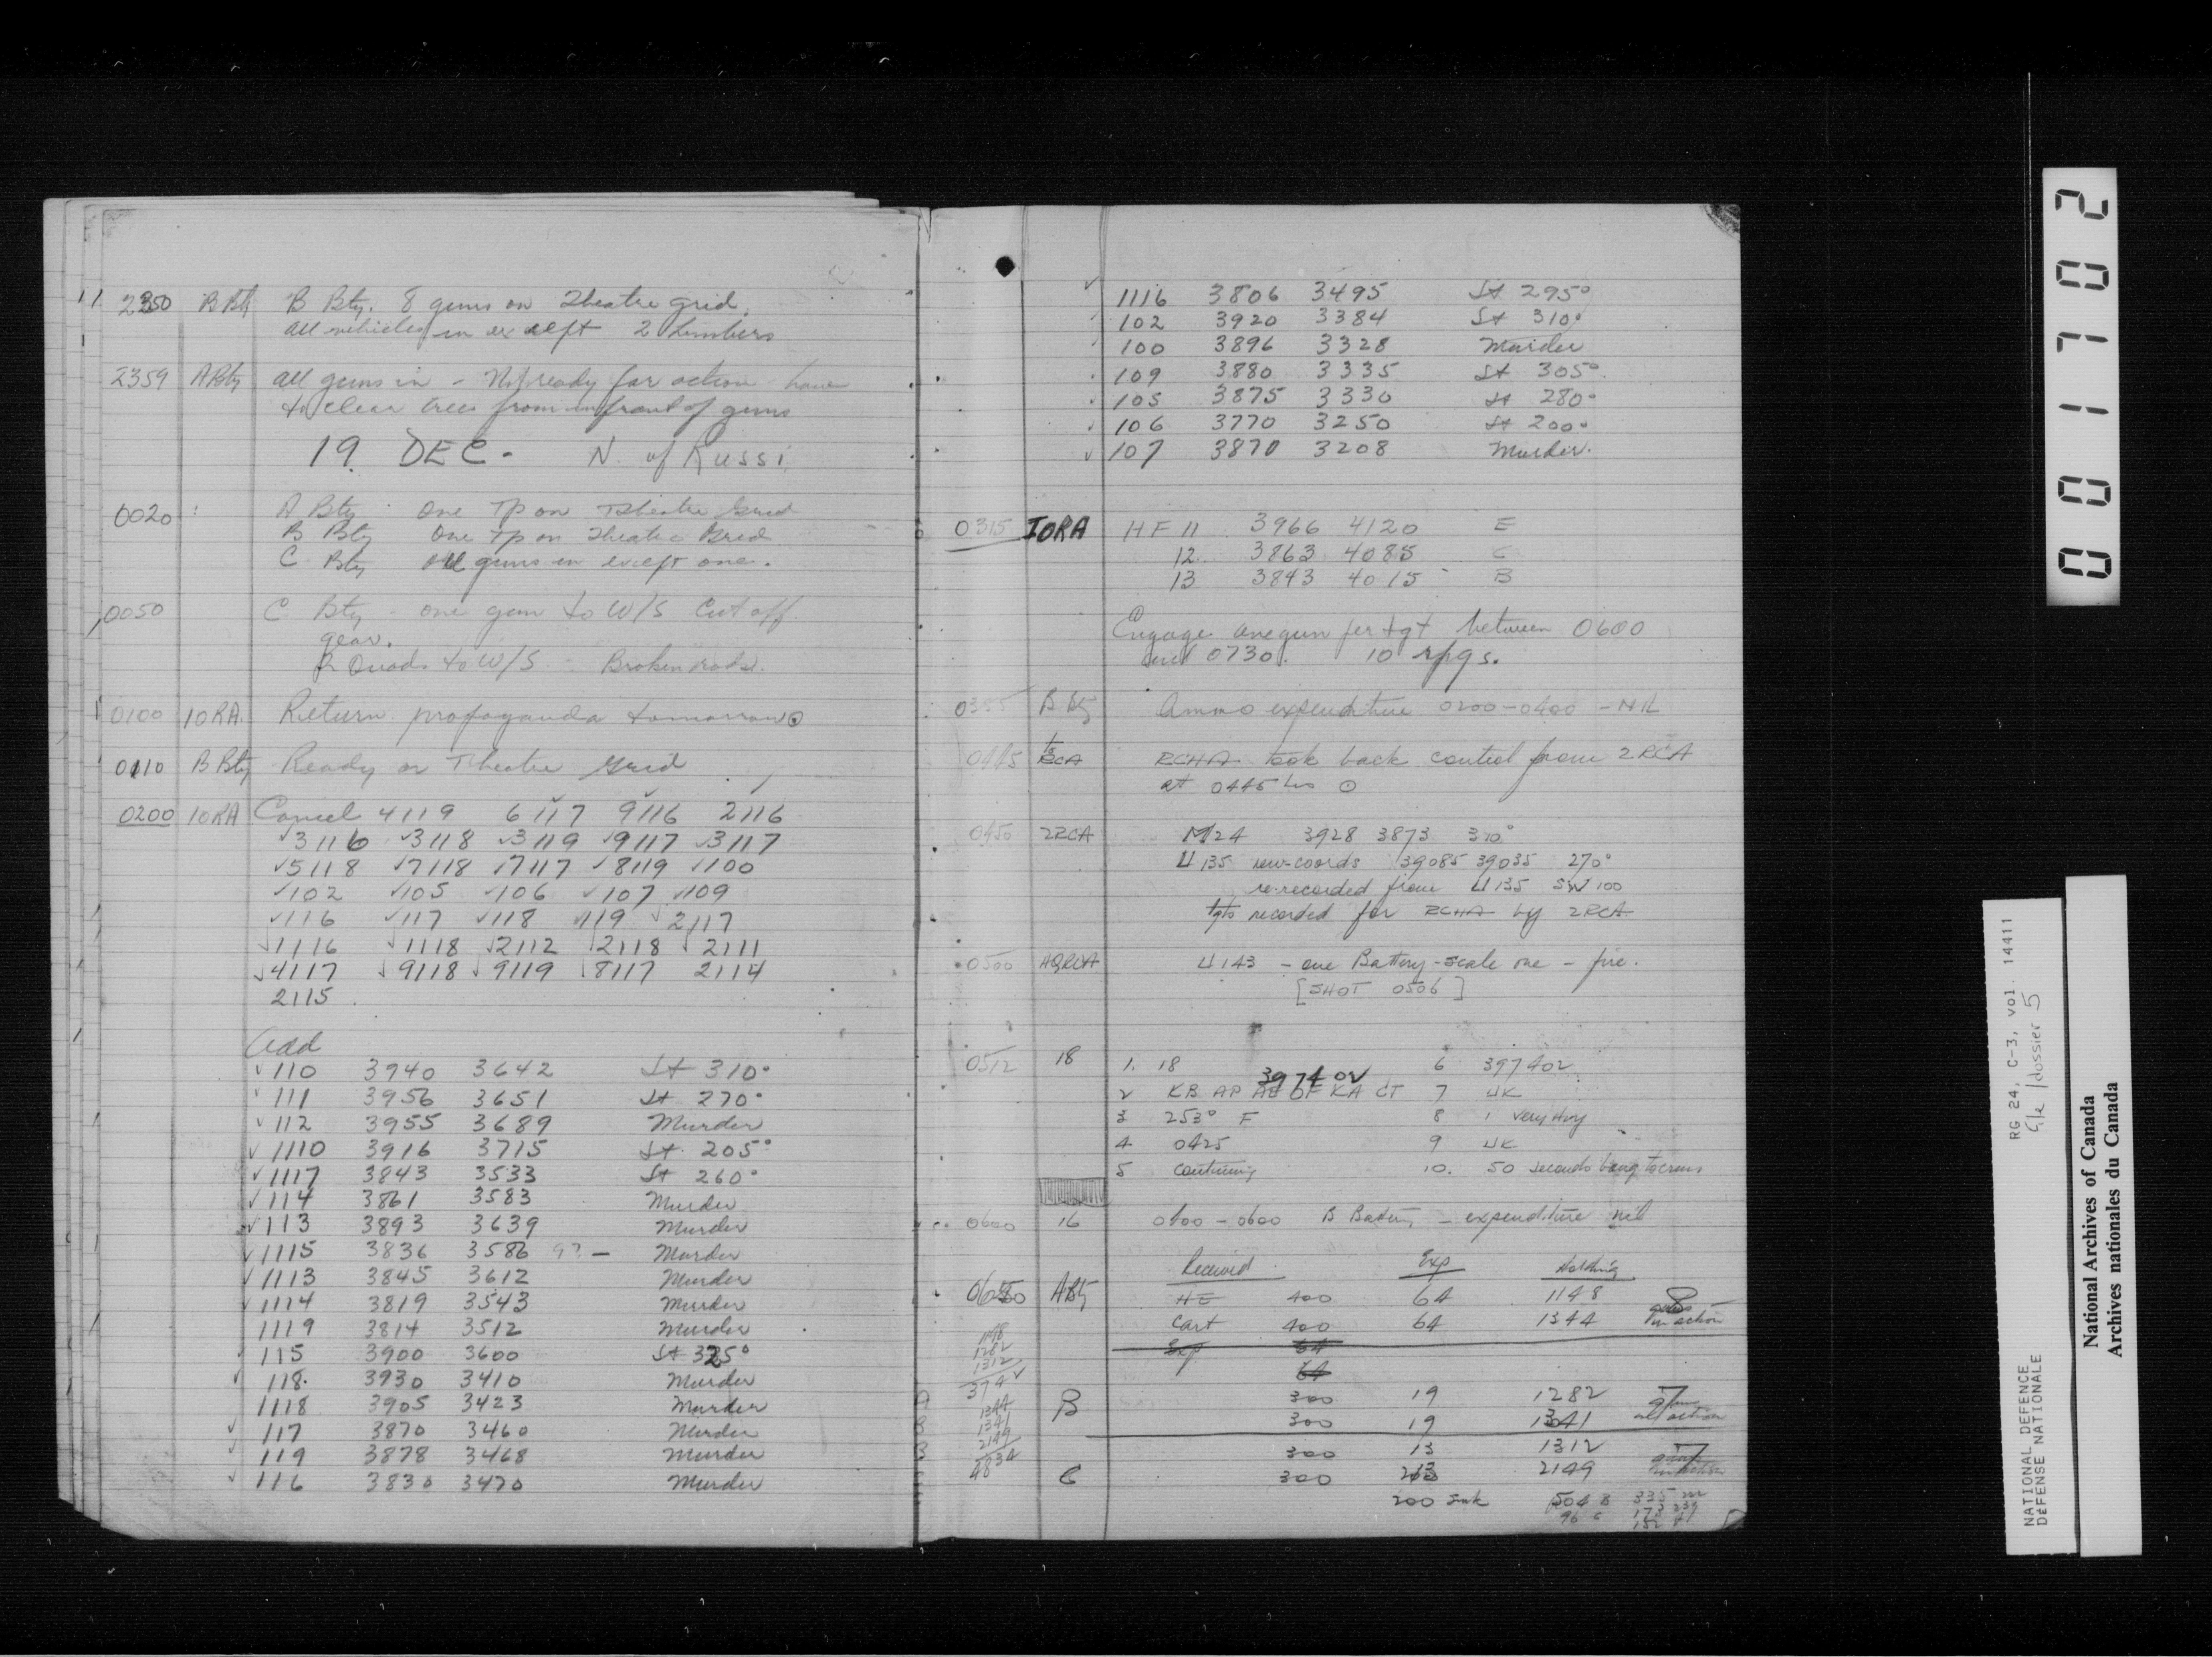 2350 B Bty B Bty. 8 guns on Theatre grid.
all vehicles in except 2 Limbers
2359 A Bty all guns in - Not ready for action - have
to clear trees from in front of guns
19 DEC - N. of Russi
0020 A Bty One Tp on Theatre Grid
B Bty One Tp on Theatre Grid
C Bty All guns in except one.
0050 C Bty - one gun to W/S Cut off
gear.
2 Quads to W/S - Broken rads.
0100 10RA Return propaganda tomorrow
0110 B Bty Ready on Theatre Grid
0200 10RA Cancel 4119 6117 9116 2116
3116 3118 3119 9117 3117
5118 7118 7117 8119 100
102 105 106 107 109
116 117 118 119 2117
1116 1118 2112 2118 2111
4117 9118 9119 8117 2114
2115
Add
110 3940 3642 St 310°
111 3956 3651 St 270°
112 3955 3689 Murder
1110 3916 3715 St. 205°
1117 3843 3533 St 260°
114 3861 3583 Murder
113 3893 3639 Murder
1115 3836 3586 9? - Murder
1113 3845 3612 Murder
1114 3819 3543 Murder
1119 3814 3512 Murder
115 3900 3600 St 325°
118. 3930 3410 Murder
1118 3905 3423 Murder
117 3870 3460 Murder
119 3878 3468 Murder
116 3830 3470 Murder
1116 3806 3495 St 295°
102 3920 3384 St 310°
100 3896 3328 Murder
109 3880 3335 St 305°
105 3875 3330 St 280°
106 3770 3250 St 200°
107 3870 3208 Murder.
0315 IORA HF 11 3966 4120 E
12 3863 4085 C
13 3843 4015 B
Engage one gun per tgt between 0600
and 0730. 10 rpgs.
0355 B Bty Ammo expenditure 0200-0400 - NIL
0445 RCA RCHA took back control from 2RCA
at 0445 hrs
0450 2RCA M24 3928 3873 310°
U135 new-coords 39085 39035 270°
re-recorded from U135 SW 100
tgts recorded for RCHA by 2RCA
0500 HQRCA U143 - one Battery - scale one - fire.
[SHOT 0506]
0512 18 1. 18 6 397402
3974 02
2 KB AP AE OF KA CT 7 UK
3 253° F 8 1 very Hvy
4 0425 9 UK
5 continuing 10. 50 seconds bang to crus
0600 16 0400-0600 B Battery - expenditure nil
Received Exp Holding
A Bty HE 400 64 1148 8
Cart 400 64 1344 in action
Exp 64
64
B 300 19 1282 7 guns
300 19 1341 in action
300 13 1312 7 guns
C 300 213 2149 in action
200 Smk 504 B
96 C
1148
1282
1312
3742
1344
1341
2149
4834
001702
RG 24, C-3, vol. 14411
file/dossier 5
NATIONAL DEFENCE
DEFENSE NATIONALE
National Archives of Canada
Archives nationales du Canada